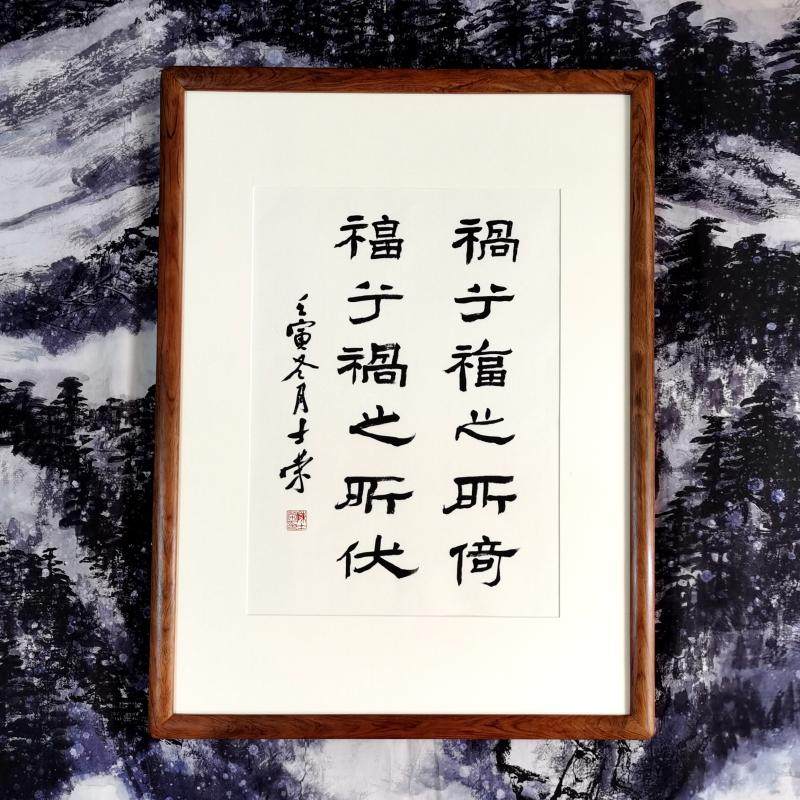 禍兮福之所倚
福兮禍之所伏
壬寅冬月士荣